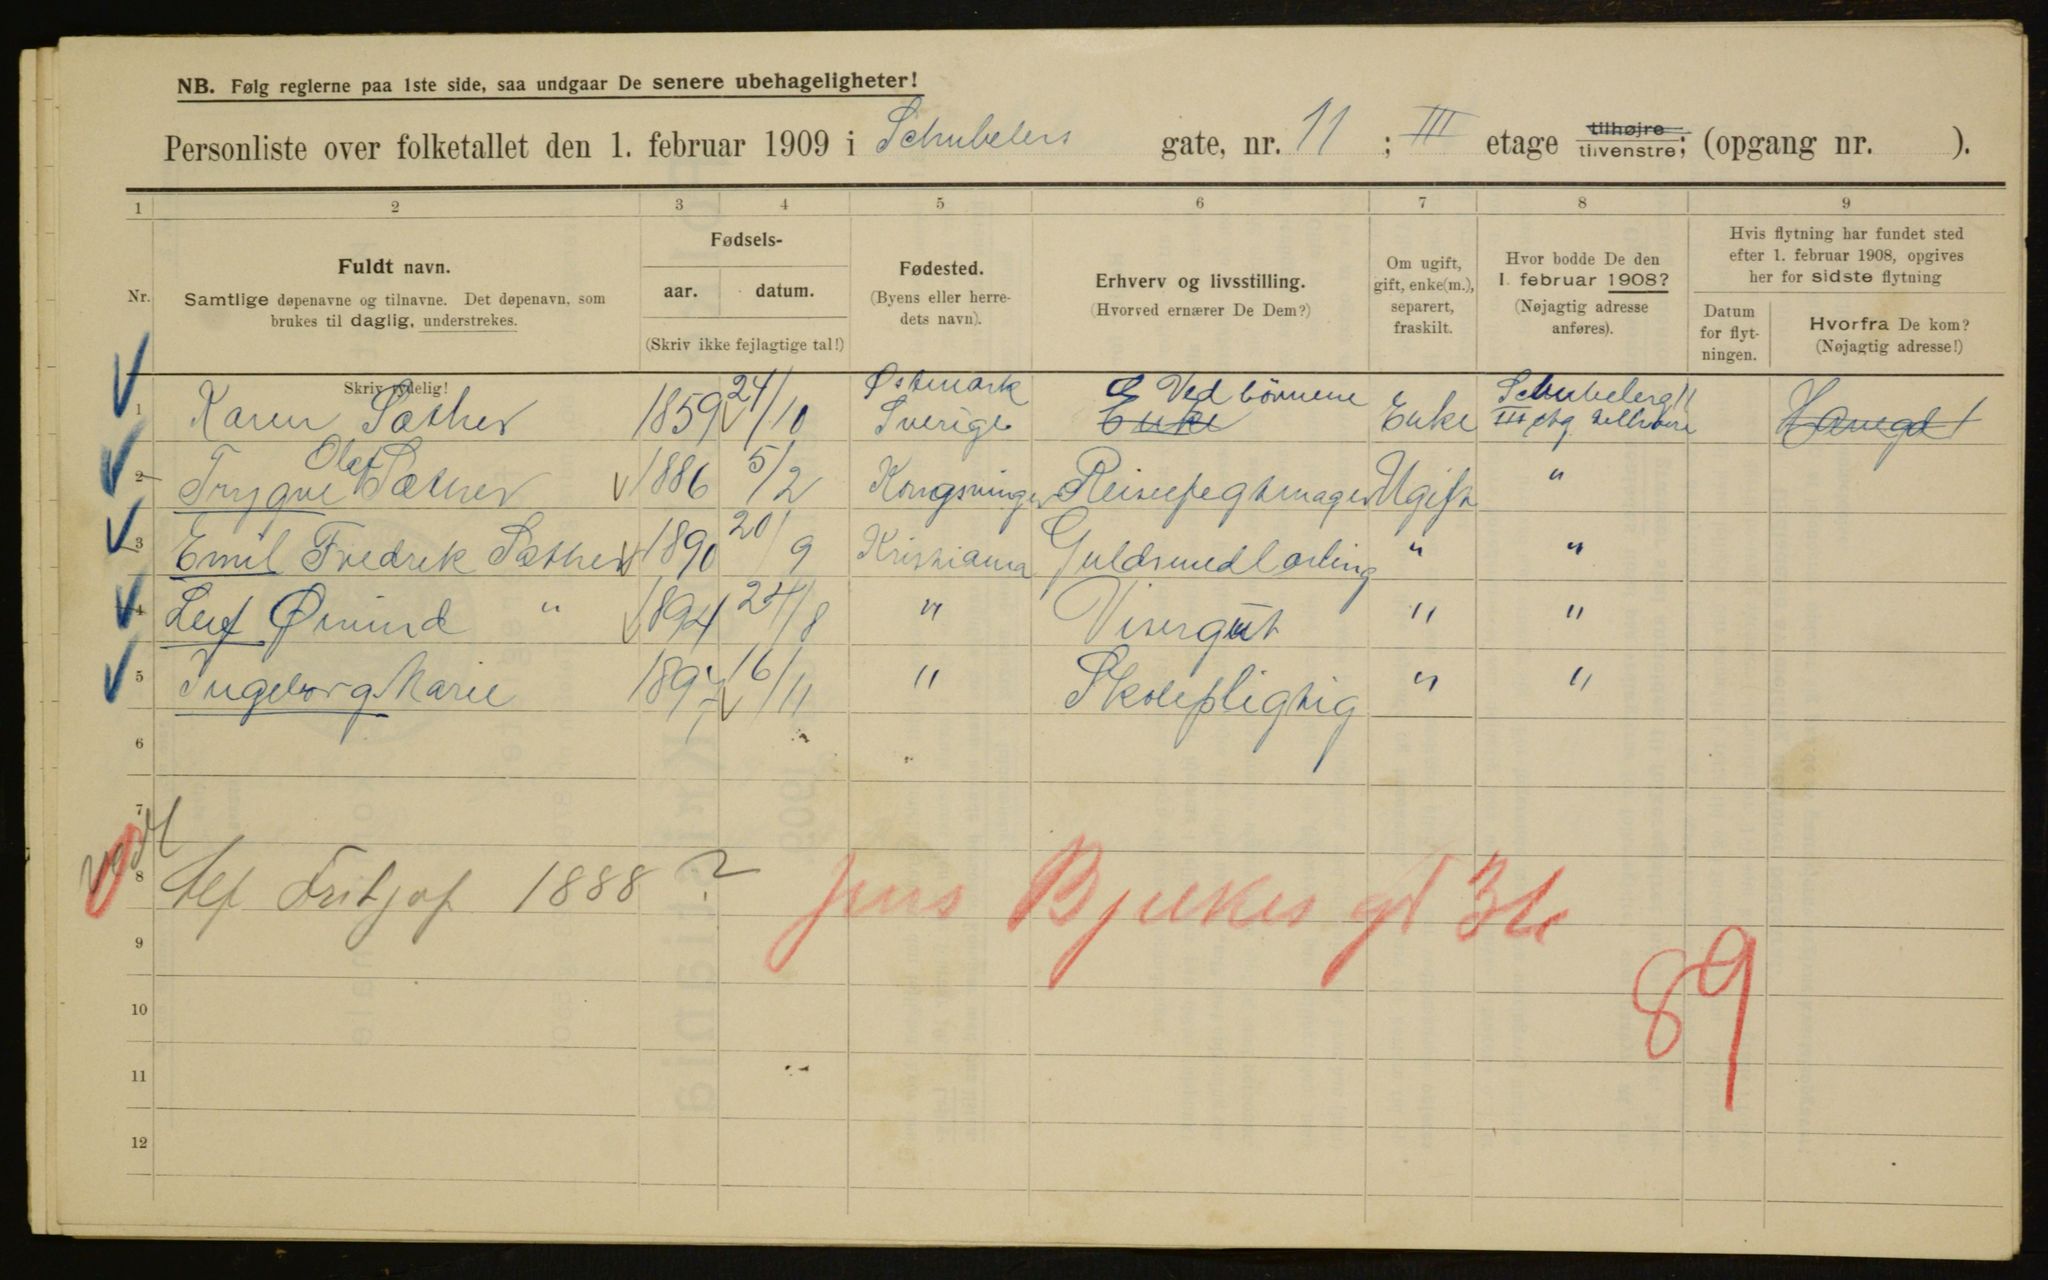 NB. Følg reglerne paa 1ste side, saa undgaar De senere ubehageligheter!
Personliste over folketallet den 1. februar 1909 i Schubelers gate, nr. 11 ; III etage tilhøjre tilvenstre; (opgang nr. ).
1 2 3 4 5 6 7 8 9
Nr.
Fuldt navn.
Samtlige døpenavne og tilnavne. Det døpenavn, som
brukes til daglig, understrekes.
Fødsels-
aar. datum.
(Skriv ikke fejlagtige tal!)
Fødested.
(Byens eller herre-
dets navn).
Erhverv og livsstilling.
(Hvorved ernærer De Dem?)
Om ugift,
gift, enke(m.),
separert,
fraskilt.
Hvor bodde De den
1. februar 1908?
(Nøjagtig adresse
anføres).
Hvis flytning har fundet sted
efter 1. februar 1908, opgives
her for sidste flytning
Datum
for flyt-
ningen.
Hvorfra De kom?
(Nøjagtig adresse!)
Skriv tydelig!
Østmark Ved börnene Schubelerg 11
1 Karen Sæther 1859 24/10 Sverige Enke Enke III etg
Olaf
2 Trygve Sæther 1886 5/2 Kongsvinger Ugift "
3 Emil Fredrik Sæther 1890 20/9 Kristiania Guldsmedlærling " "
4 Leif Øivind " 1894 24/8 " Visergut " "
5 Ingeborg Marie 1897 16/11 " Skolepligtig " "
6
7
8 Alf Fritjof 1888 ? Jens Bjelkes gt
9
89
10
11
12